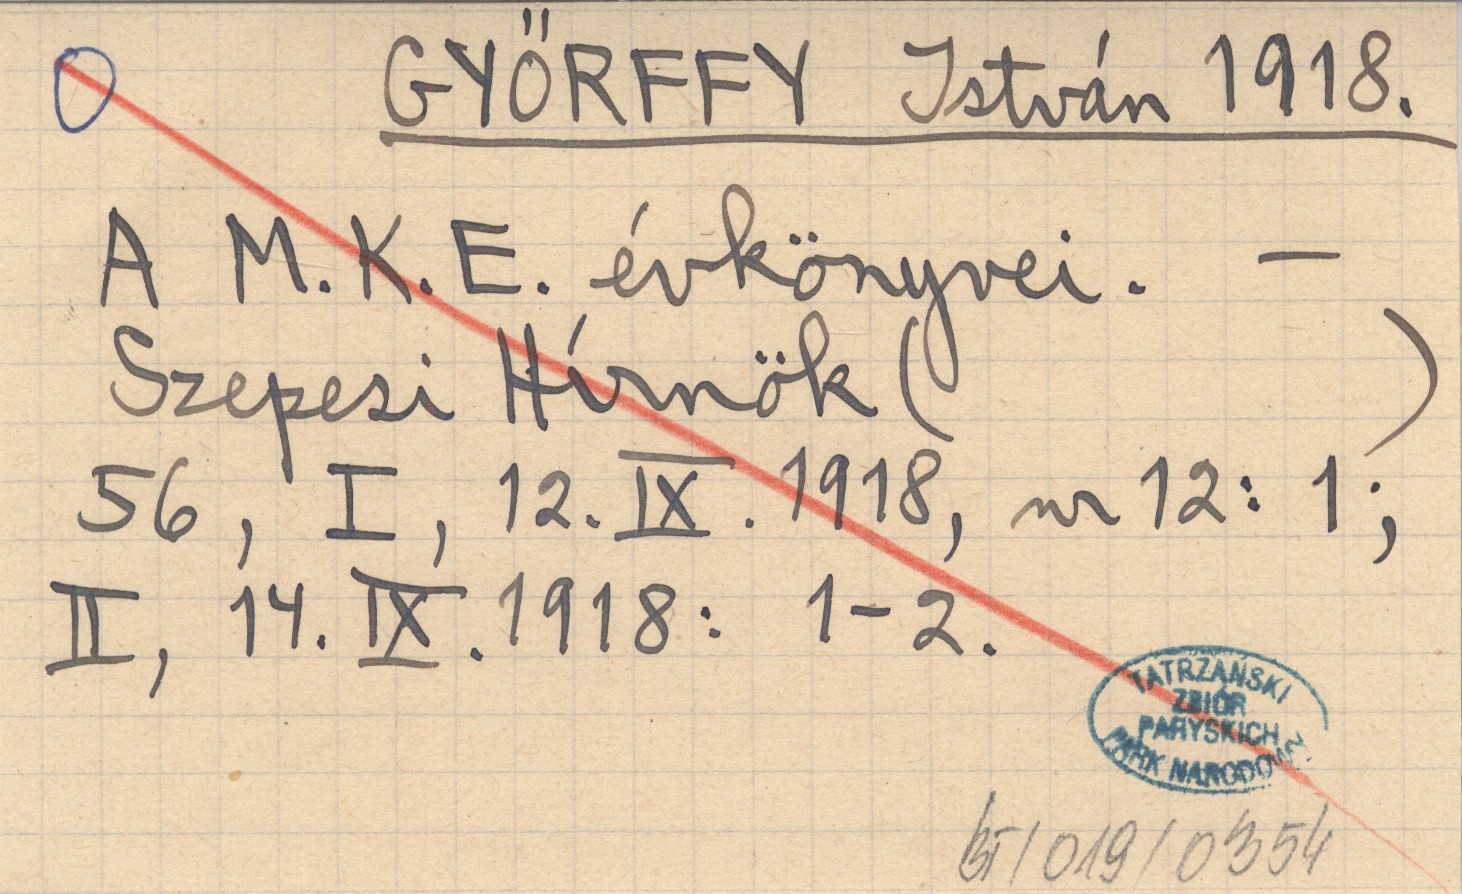 O GYŐRFFY István 1918.
A M.K.E. évkönyvei. —
Szepesi Hírnök ( )
56, I, 12. IX. 1918, nr 12: 1;
II, 14. IX. 1918: 1-2.
TATRZAŃSKI
ZBIÓR
PARYSKICH
PARK NARODOWY
BT/019/0354